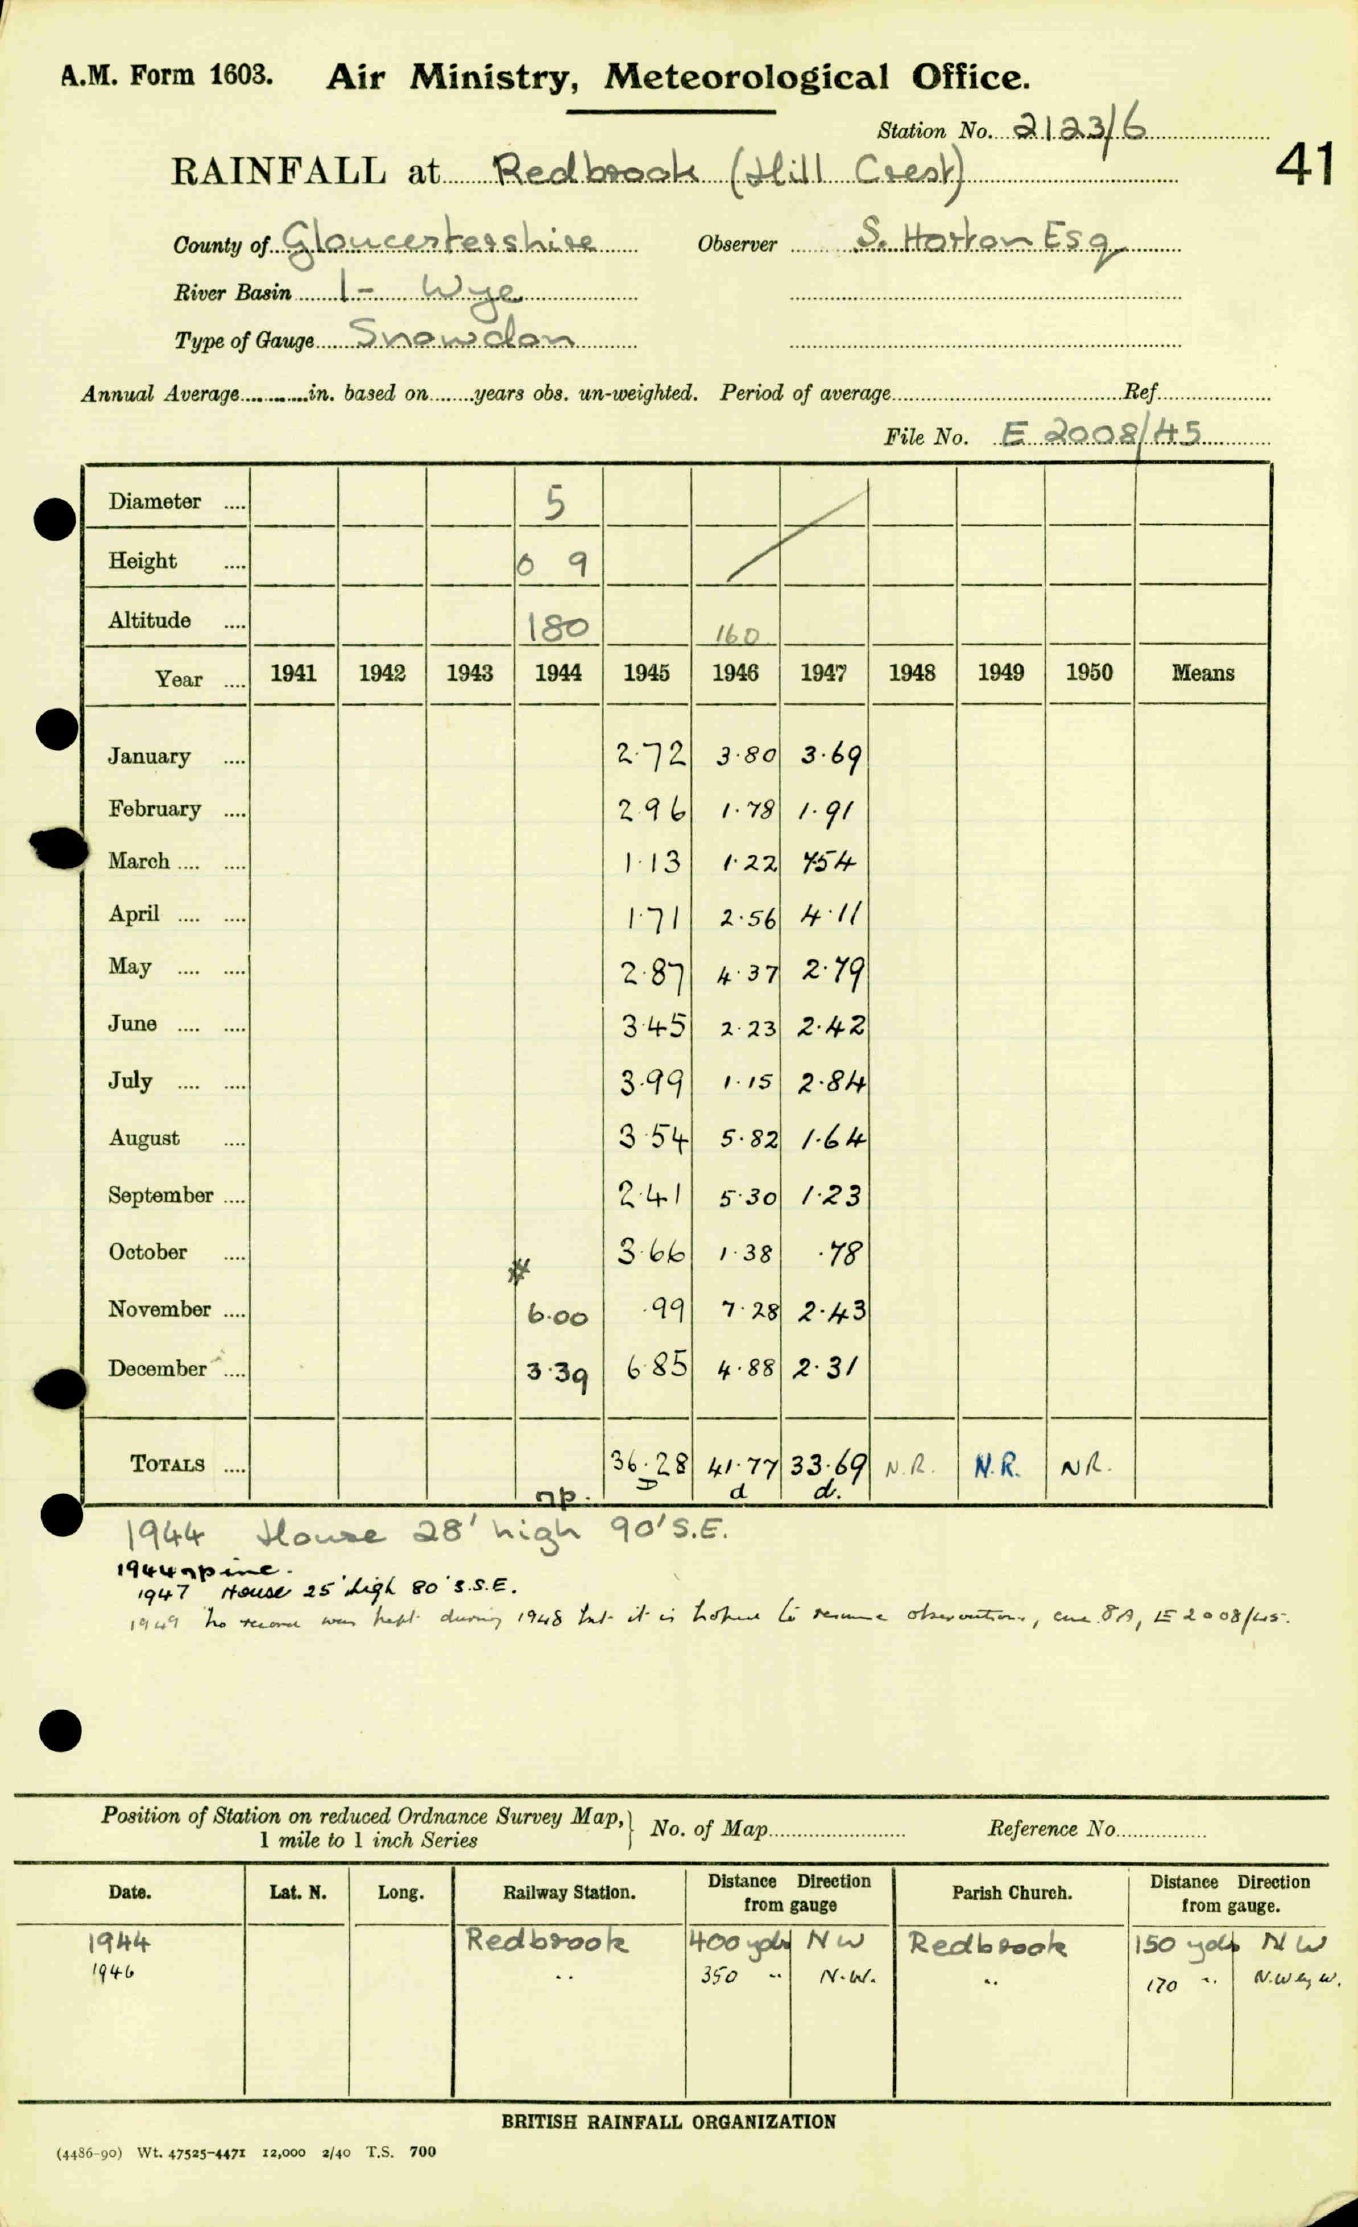 A.M. Form 1603. Air Ministry, Meteorological Office.
Station No. 2123/6
41
RAINFALL at Redbrook (Hill Crest)
County of Gloucestershire Observer S. Horton Esq
River Basin 1 - Wye
Type of Gauge Snowdon
Annual Average in. based on years obs. un-weighted. Period of average Ref.
File No. E 2008/45
Diameter .... 5
Height .... 0 9
Altitude .... 180 160
Year .... 1941 1942 1943 1944 1945 1946 1947 1948 1949 1950 Means
January .... 2.72 3.80 3.69
February .... 2.96 1.78 1.91
March .... .... 1.13 1.22 7.54
April .... .... 1.71 2.56 4.11
May .... .... 2.87 4.37 2.79
June .... .... 3.45 2.23 2.42
July .... .... 3.99 1.15 2.84
August .... 3.54 5.82 1.64
September .... 2.41 5.30 1.23
October .... # 3.66 1.38 .78
November .... 6.00 .99 7.28 2.43
December .... 3.39 6.85 4.88 2.31
TOTALS .... 36.28 41.77 33.69 N.R. N.R. NR.
np. D d d.
1944 House 28' high 90' S.E.
1944 np inc.
1947 House 25' high 80' S.S.E.
1949 No record was kept during 1948 but it is hoped to resume observations, E 2008/45.
Position of Station on reduced Ordnance Survey Map, 1 mile to 1 inch Series } No. of Map Reference No.
Date. Lat. N. Long. Railway Station. Distance Direction from gauge Parish Church. Distance Direction from gauge.
1944 Redbrook 400 yds NW Redbrook 150 yds NW
1946 " 350 " N.W. " 170 " N.W by W.
BRITISH RAINFALL ORGANIZATION
(4486-90) Wt. 47525-4471 12,000 2/40 T.S. 700